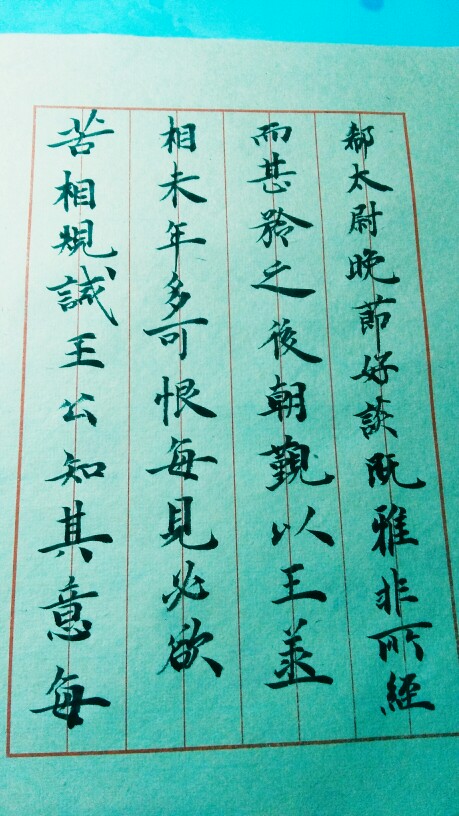 郗太尉晚節好談既雅非所經
而甚矜之後朝覲以王丞
相末年多可恨每見必欲
苦相規誡王公知其意每